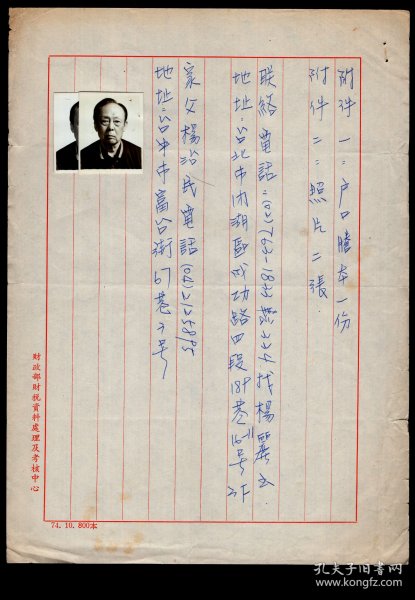 附件一：戶口謄本一份
附件二：照片二張
聯絡電話：(02)762-1833 找楊麗
地址：台北市內湖區成功路四段189巷16-11号
家父楊治民電話(04)2125895
地址：台中市富台街67巷3号
財政部財稅資料處理及考核中心
74.10.800本
孔夫子旧书网
www.kongfz.com